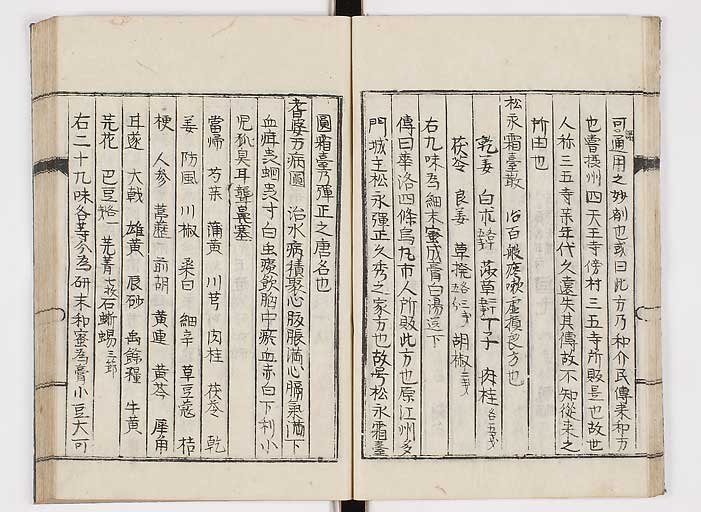 可通用之妙剤也或曰此方乃和介氏傳来和方
也嘗摂州四天王寺傍村三五寺所販是也故世
人称三五寺来年代久遠失其傳故不知從来之
所由也
松永霜臺散 治百般痰嗽虚損良方也
乾姜 白朮 莪草 丁子 肉桂各五
茯苓 良姜 草撥 胡椒
右九味為細末蜜成膏白湯送下
傳曰華洛四條烏丸市人所販此方也原江州多
門城主松永弾正久秀之家方也故号松永霜臺
圓霜臺乃弾正之唐名也
耆婆万病圓 治水病積聚心腹脹満心膈気満下
血痺虫蛔虫寸白虫痰飲胸中瘀血赤白下利小
児狐臭耳聾鼻塞
當帰 芍薬 蒲黄 川芎 肉桂 茯苓 乾
姜 防風 川椒 桑白 細辛 草豆蔲 桔
梗 人参 葶藶 前胡 黄連 黄芩 犀角
甘遂 大戟 雄黄 辰砂 禹餘糧 牛黄
芫花 巴豆 芫菁 石蜥蜴
右二十九味各等分為研末和蜜為膏小豆大可